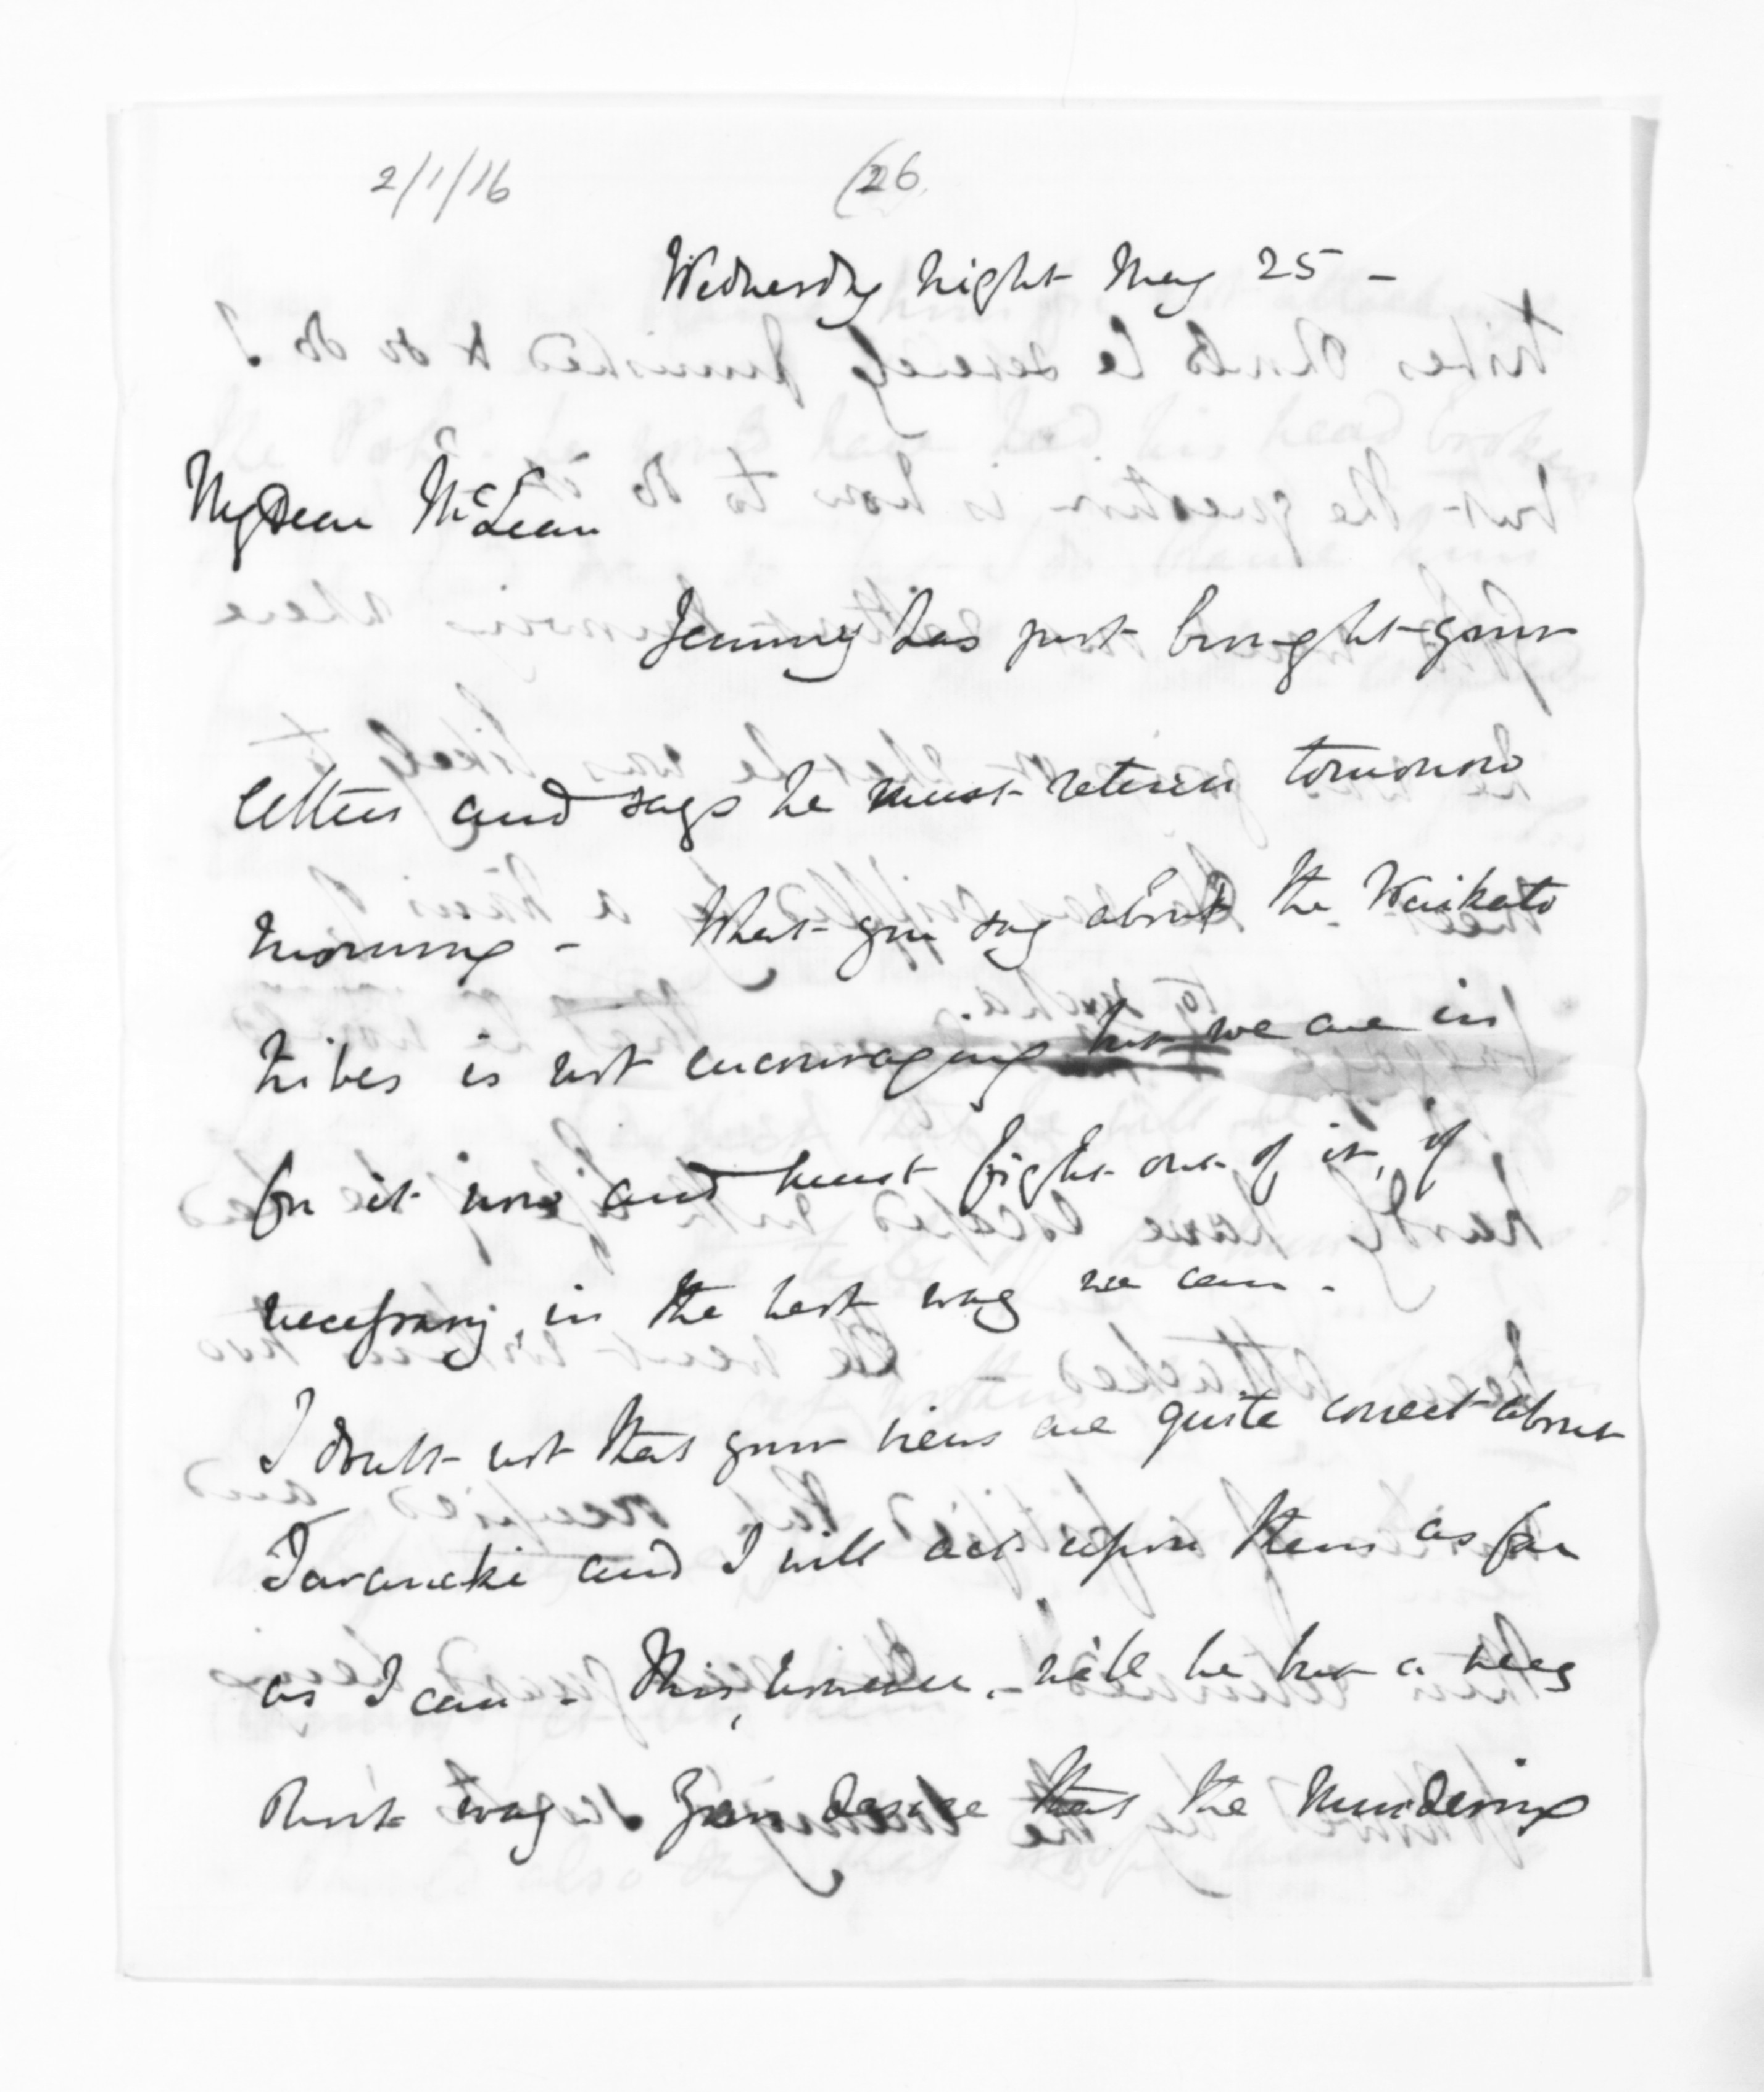 2/1/16
(26
Wednesday night May 25 -
My Dear McLean
Jemmy has just brought your
letters and says he must return tomorrow
morning - What you say about the Waikato
tribes is not encouraging but we are in
for it now and must fight out of it, if
necessary, in the best way we can.
I doubt not that your views are quite correct about
Taranaki and I will act upon them as far
as I can - This, however, will be but a very
short way. You desire that the murdering